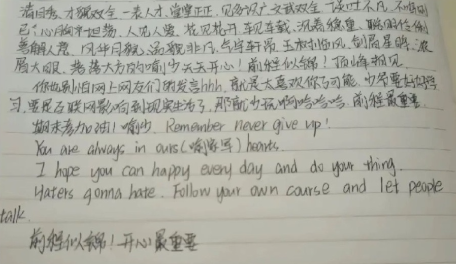 清目秀、才貌双全、一表人才、堂堂正正、见多识广、文武双全、谈吐不凡、不骄
心胸坦荡、人见人爱、花见花开、车见车载、沉着稳重、聪明伶俐
善解人意、风华月貌、逼貌非凡、气宇轩昂、玉树临风、剑眉星目、浓
眉大眼、落落大方的喻少天天开心!前程似锦!顶峰相见。
你也别怕网上网友们 hhh, 就是太喜欢你了可能、少爷要好好学
习,要是互联网影响到现实生活了,那就少玩啊哈哈哈,前程最重要。
期末考加油!喻少。Remember never give up!
You are always in ours(喻家军) hearts.
I hope you can happy every day and do your thing.
Haters gonna hate. Follow your own course and let people
talk.
前程似锦!开心最重要